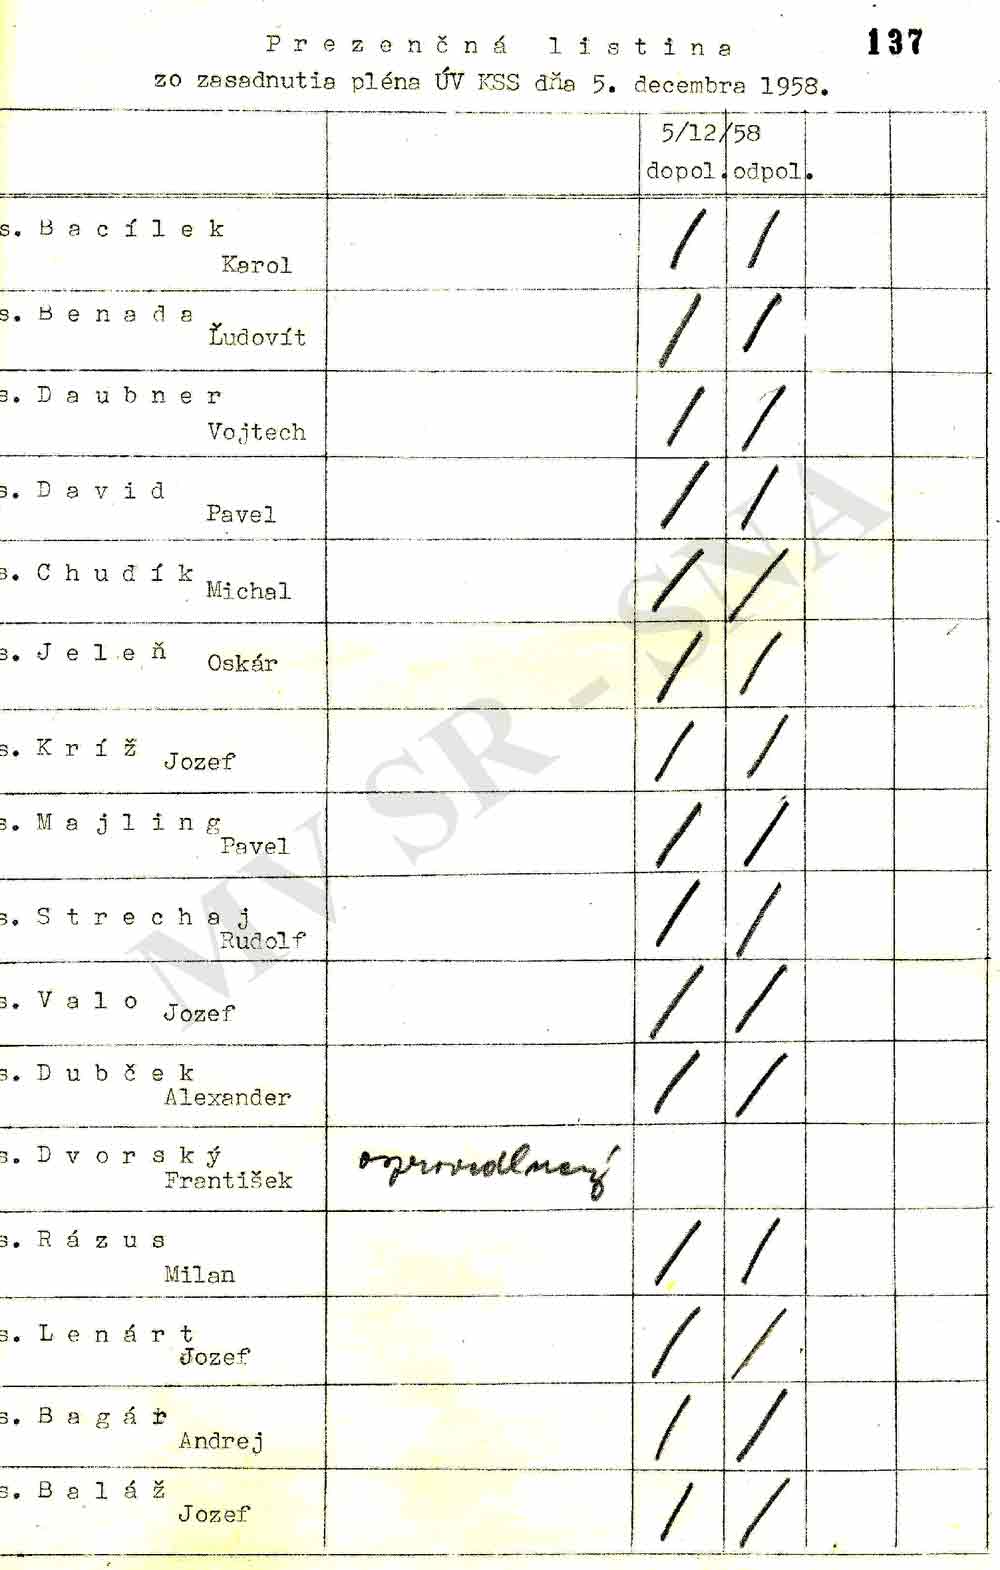 137
P r e z e n č n á   l i s t i n a
zo zasadnutia pléna ÚV KSS dňa 5. decembra 1958.
5/12/58
dopol. odpol.
s. B a c í l e k
Karol
s. B e n a d a
Ľudovít
s. D a u b n e r
Vojtech
s. D a v i d
Pavel
s. C h u d í k
Michal
s. J e l e ň Oskár
s. K r í ž
Jozef
s. M a j l i n g
Pavel
s. S t r e c h a j
Rudolf
s. V a l o
Jozef
s. D u b č e k
Alexander
s. D v o r s k ý
František
ospravedlnený
s. R á z u s
Milan
s. L e n á r t
Jozef
s. B a g á r
Andrej
s. B a l á ž
Jozef
MV SR - SNA